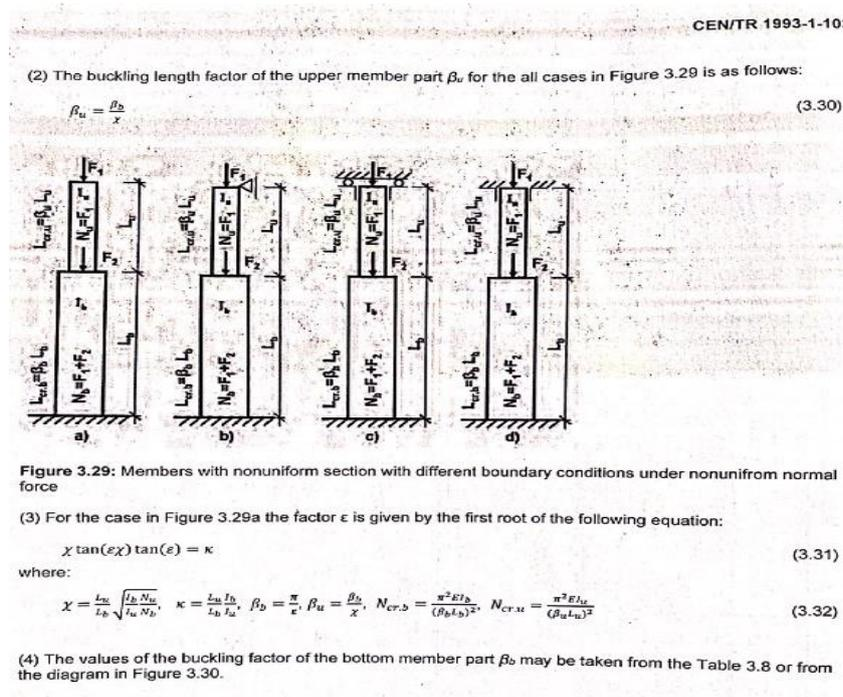 CEN/TR 1993-1-103
(2) The buckling length factor of the upper member part βu for the all cases in Figure 3.29 is as follows:
βu = βb/χ (3.30)
F1 F1 F1 F1
Lcr,u=βu Lu Nu=F1 Iu Lu Lcr,u=βu Lu Nu=F1 Iu Lu Lcr,u=βu Lu Nu=F1 Iu Lu Lcr,u=βu Lu Nu=F1 Iu Lu
F2 F2 F2 F2
Lcr,b=βb Lb Nb=F1+F2 Ib Lb Lcr,b=βb Lb Nb=F1+F2 Ib Lb Lcr,b=βb Lb Nb=F1+F2 Ib Lb Lcr,b=βb Lb Nb=F1+F2 Ib Lb
a) b) c) d)
Figure 3.29: Members with nonuniform section with different boundary conditions under nonunifrom normal
force
(3) For the case in Figure 3.29a the factor ε is given by the first root of the following equation:
χ tan(εχ) tan(ε) = κ (3.31)
where:
χ = Lu/Lb √(Ib Nu/Iu Nb), κ = Lu Ib/Lb Iu, βb = π/ε, βu = βb/χ, Ncr.b = π²EIb/(βbLb)², Ncr.u = π²EIu/(βuLu)² (3.32)
(4) The values of the buckling factor of the bottom member part βb may be taken from the Table 3.8 or from
the diagram in Figure 3.30.